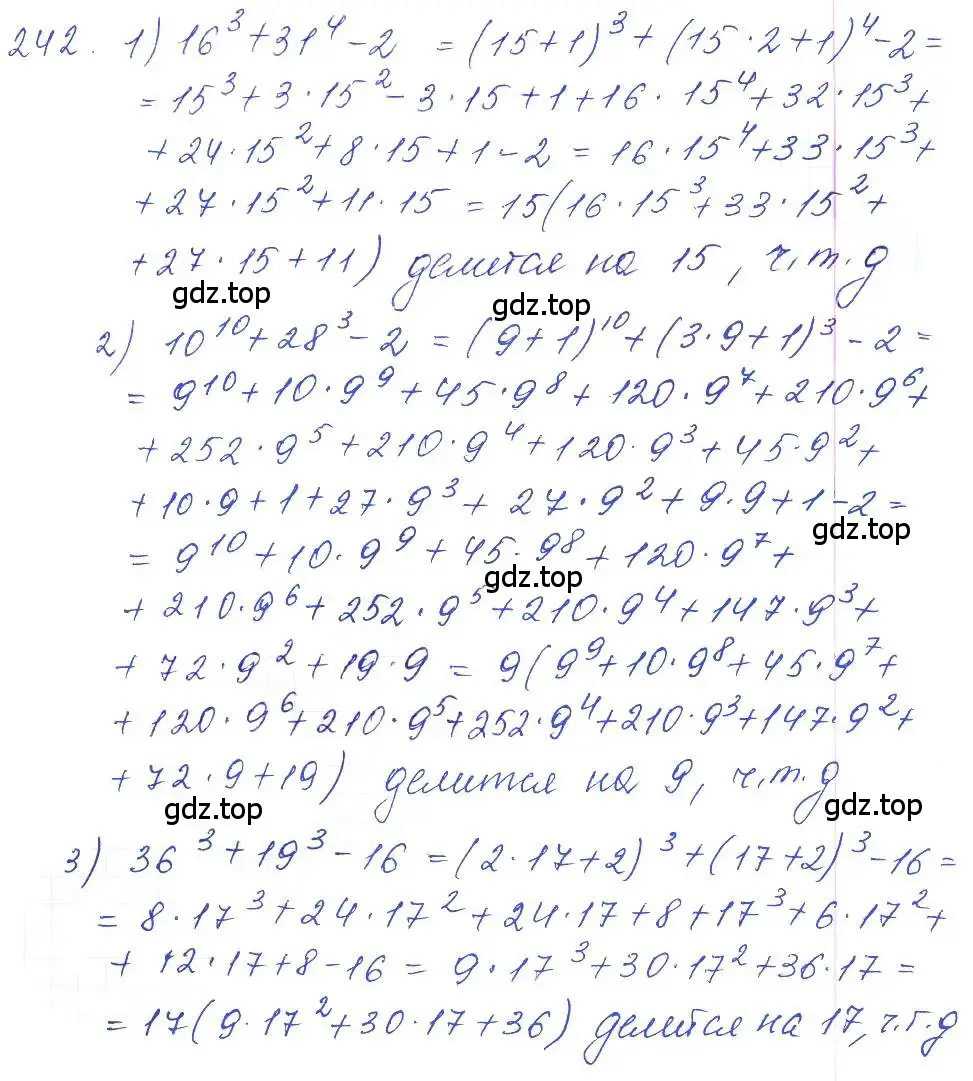 242. 1) 16³+31⁴-2 = (15+1)³+(15·2+1)⁴-2=
=15³+3·15²-3·15+1+16·15⁴+32·15³+
+24·15²+8·15+1-2=16·15⁴+33·15³+
+27·15²+11·15=15(16·15³+33·15²+
+27·15+11) делится на 15, ч.т.д
gdz.top gdz.top
2) 10¹⁰+28³-2=(9+1)¹⁰+(3·9+1)³-2=
=9¹⁰+10·9⁹+45·9⁸+120·9⁷+210·9⁶+
+252·9⁵+210·9⁴+120·9³+45·9²+
+10·9+1+27·9³+27·9²+9·9+1-2=
gdz.top
=9¹⁰+10·9⁹+45·9⁸+120·9⁷+
gdz.top
+210·9⁶+252·9⁵+210·9⁴+147·9³+
+72·9²+19·9=9(9⁹+10·9⁸+45·9⁷+
+120·9⁶+210·9⁵+252·9⁴+210·9³+147·9²+
+72·9+19) делится на 9, ч.т.д
gdz.top gdz.top
3) 36³+19³-16=(2·17+2)³+(17+2)³-16=
=8·17³+24·17²+24·17+8+17³+6·17²+
+12·17+8-16=9·17³+30·17²+36·17=
=17(9·17²+30·17+36) делится на 17, ч.т.д